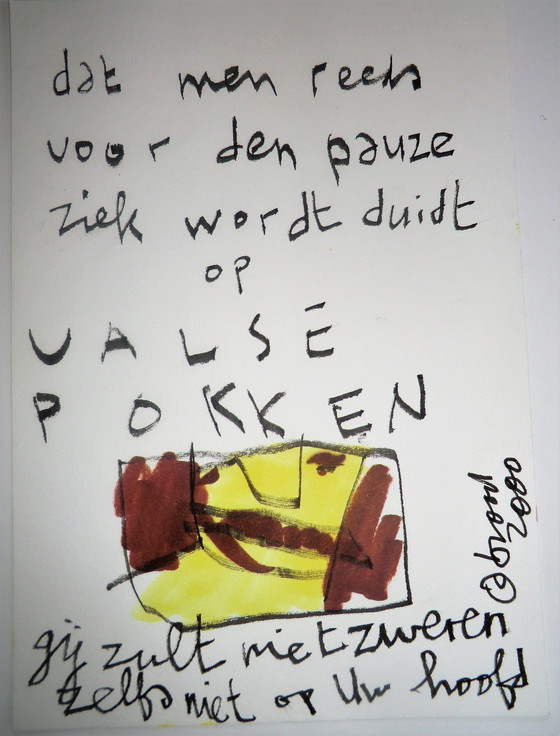 dat men reeds
voor den pauze
ziek wordt duidt
op
VALSE
POKKEN
gij zult niet zweren
zelfs niet op Uw hoofd